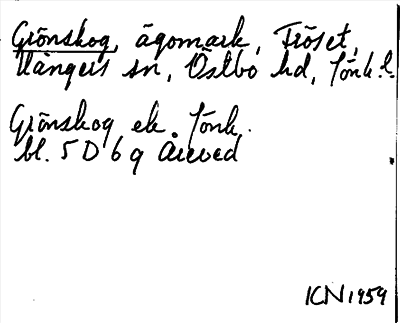 Grönskog, ägomark, Fröset,
Vångers sn, Östbo hd, Jönk. l.
Grönskog ek. Jönk.
bl. 5 D 6 g Area
ICN 1959